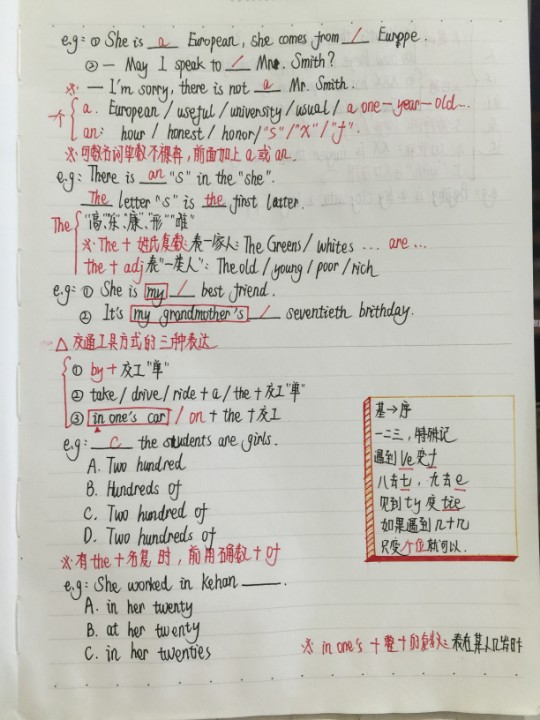 e.g: ① She is a European, she comes from / Europpe
② — May I speak to / Mrs. Smith?
※ — I'm sorry, there is not a Mr. Smith.
一个
a. European / useful / university / usual / a one-year-old...
an: hour / honest / honor / "S" / "X" / "f".
※ 可数名词单数不裸奔，前面加上 a 或 an.
e.g: There is an "S" in the "she".
The letter "s" is the first latter.
The
"高"、"乐"、"康"、"形" "唯"
※ The + 姓氏复数: 表一家人: The Greens / whites ... are ...
the + adj 表"一类人": The old / young / poor / rich
e.g: ① She is my / best friend.
② It's my grandmother's / seventieth brithday.
△ 交通工具方式的三种表达
① by + 交工"单"
② take / drive / ride + a / the + 交工"单"
③ in one's car / on + the + 交工
e.g: C the students are girls.
A. Two hundred
B. Hundreds of
C. Two hundred of
D. Two hundreds of
※ 有 the + 名复 时, 前用 确数 + of
e.g: She worked in Kehan ____.
A. in her twenty
B. at her twenty
C. in her twenties
※ in one's + 整十的复数: 表在某人几岁时
基→序
一二三, 特殊记
遇到 ve 变 f
八去 t, 九去 e
见到 ty 变 tie
如果遇到几十几
只变个位就可以.